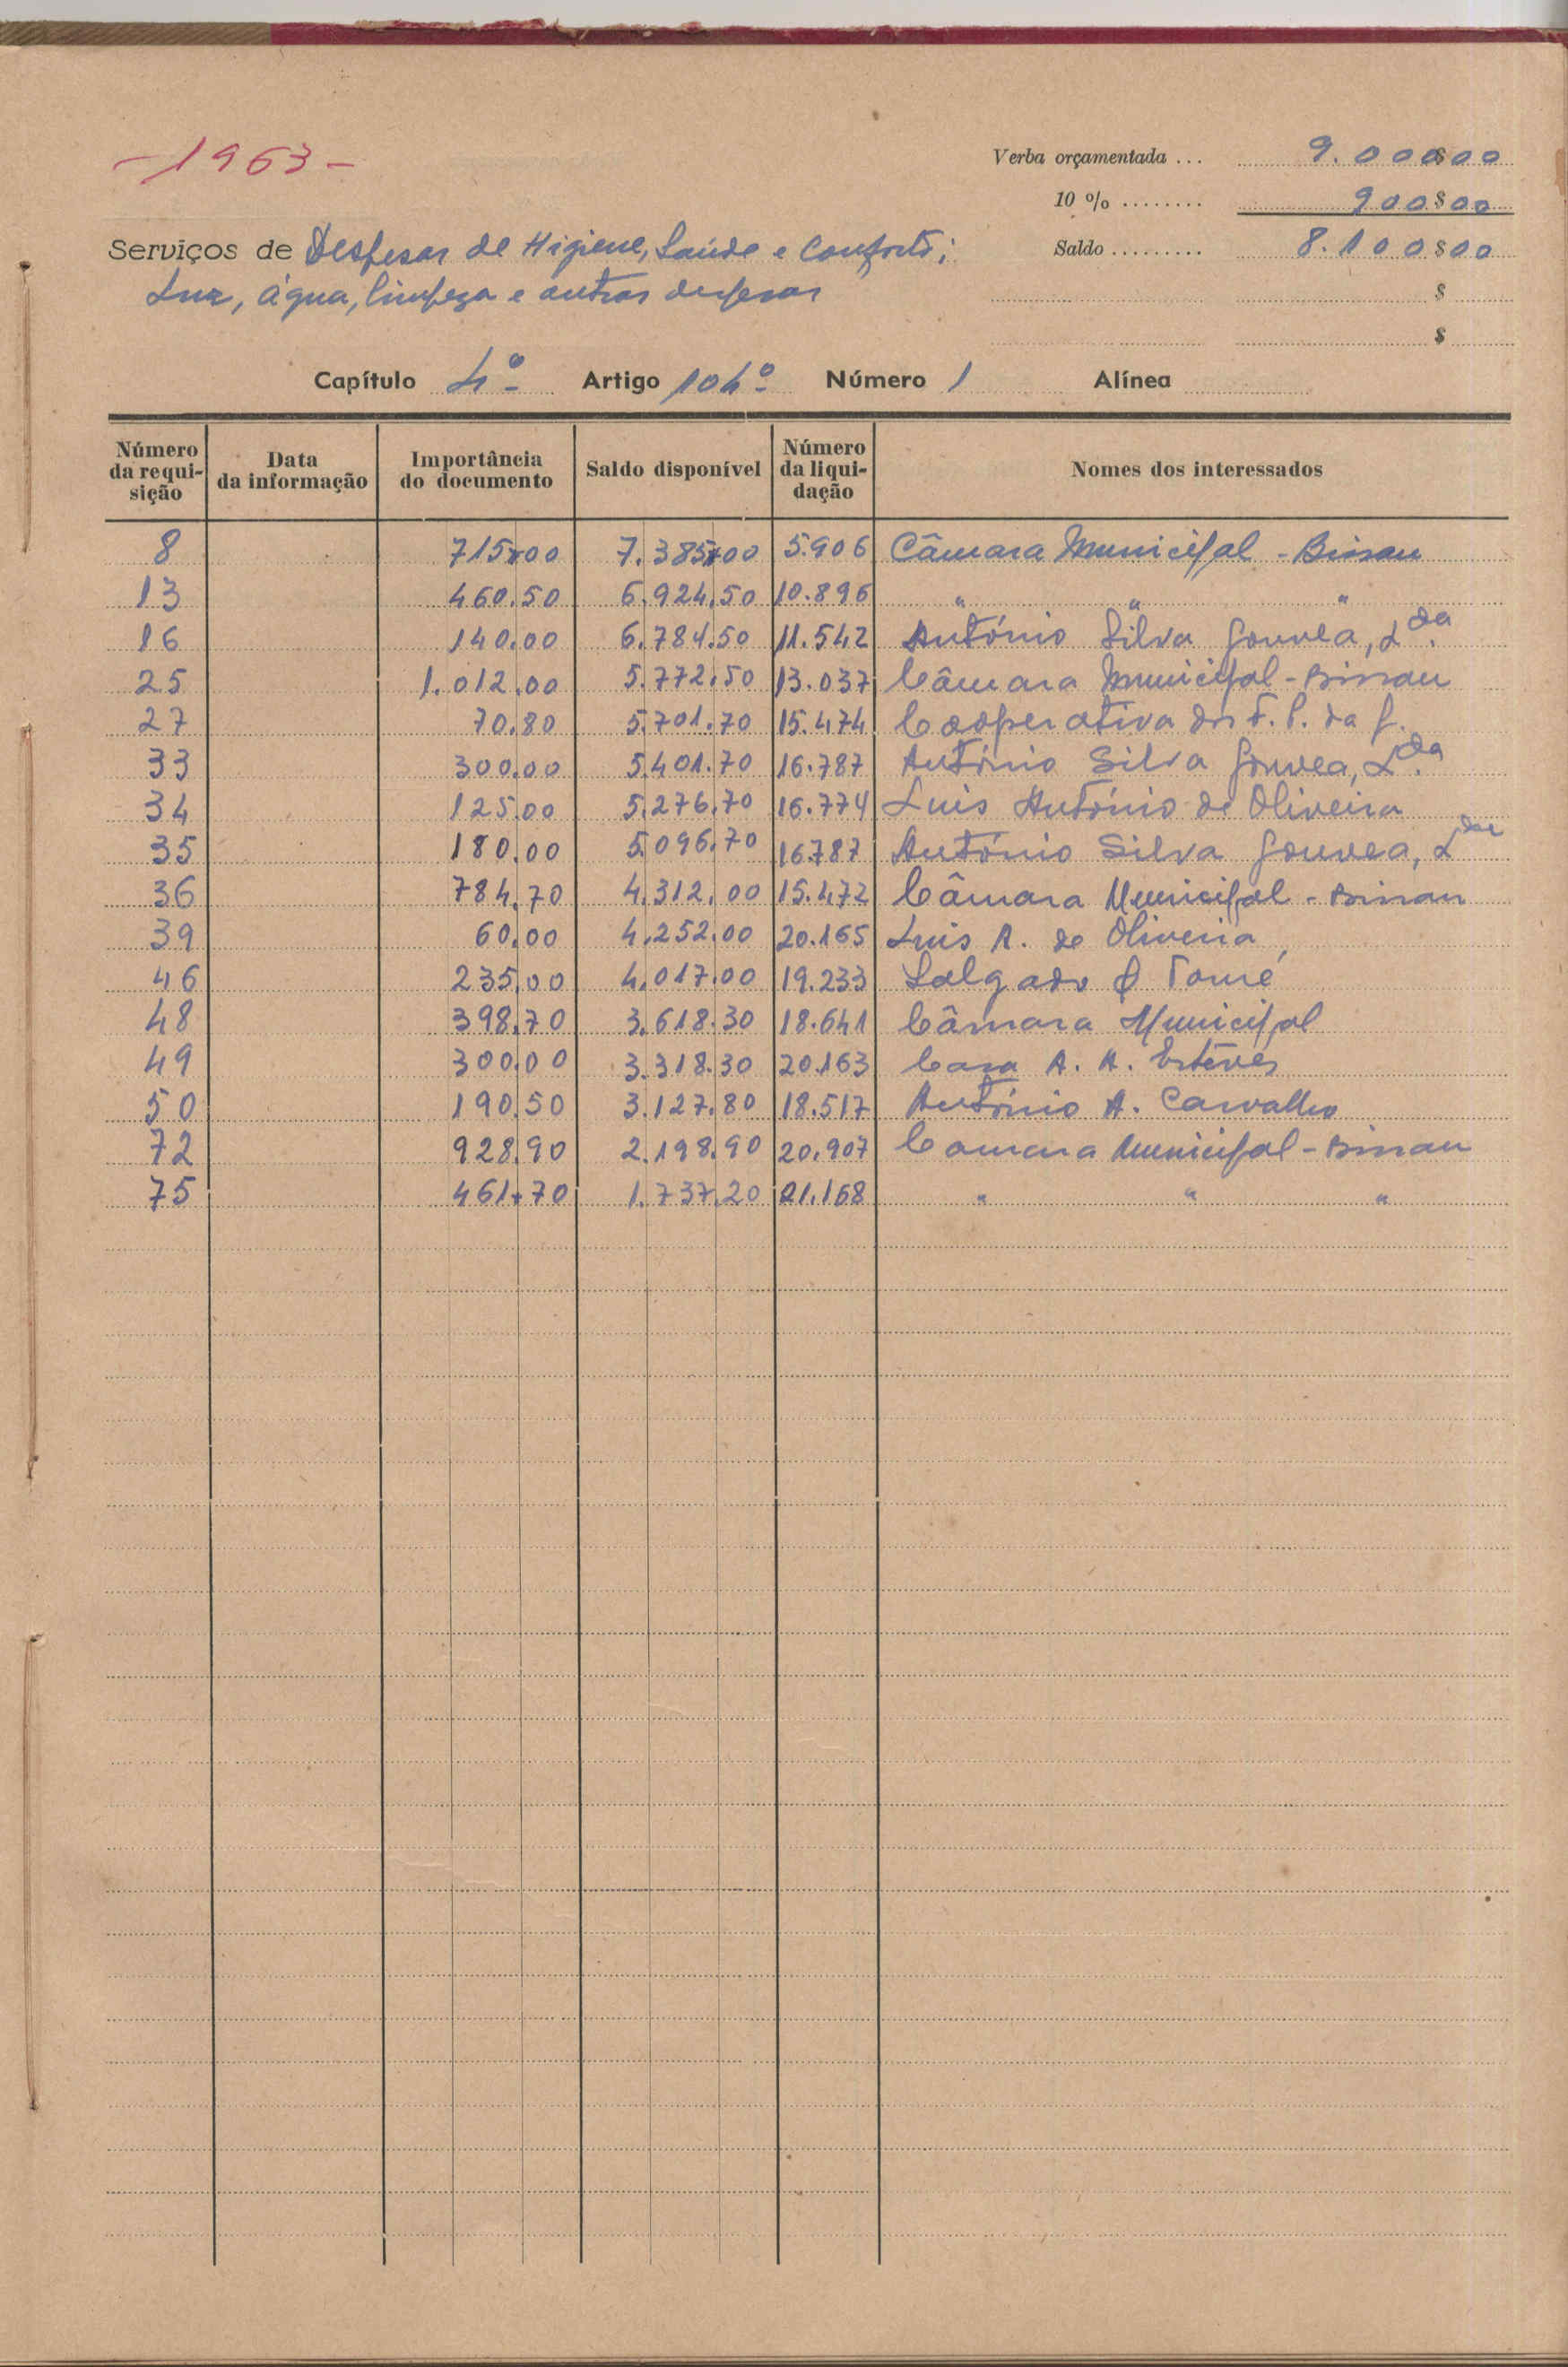 -1963-
Verba orçamentada ... 9.000$00
10 % ........ 900$00
Serviços de Despesas de Higiene, Saúde e Conforto; Saldo ......... 8.100$00
Luz, água, limpeza e outras despesas $
$
Capítulo 4º Artigo 104º Número 1 Alínea
Número da requisição Data da informação Importância do documento Saldo disponível Número da liquidação Nomes dos interessados
8 715.00 7.385.00 5.906 Câmara Municipal - Bissau
13 460.50 6.924.50 10.896 " " "
16 140.00 6.784.50 11.542 António Silva Gouvea, Lda.
25 1.012.00 5.772.50 13.037 Câmara Municipal - Bissau
27 70.80 5.701.70 15.474 Cooperativa dos F. P. da G.
33 300.00 5.401.70 16.787 António Silva Gouvea, Lda.
34 125.00 5.276.70 16.774 Luis António de Oliveira
35 180.00 5.096.70 16787 António Silva Gouvea, Lda
36 784.70 4.312.00 15.472 Câmara Municipal - Bissau
39 60.00 4.252.00 20.165 Luis A. de Oliveira
46 235.00 4.017.00 19.233 Salgado & Tomé
48 398.70 3.618.30 18.641 Câmara Municipal
49 300.00 3.318.30 20.163 Casa A. A. Esteves
50 190.50 3.127.80 18.517 António A. Carvalho
72 928.90 2.198.90 20.907 Camara Municipal - Bissau
75 461.70 1.737.20 21.168 " " "